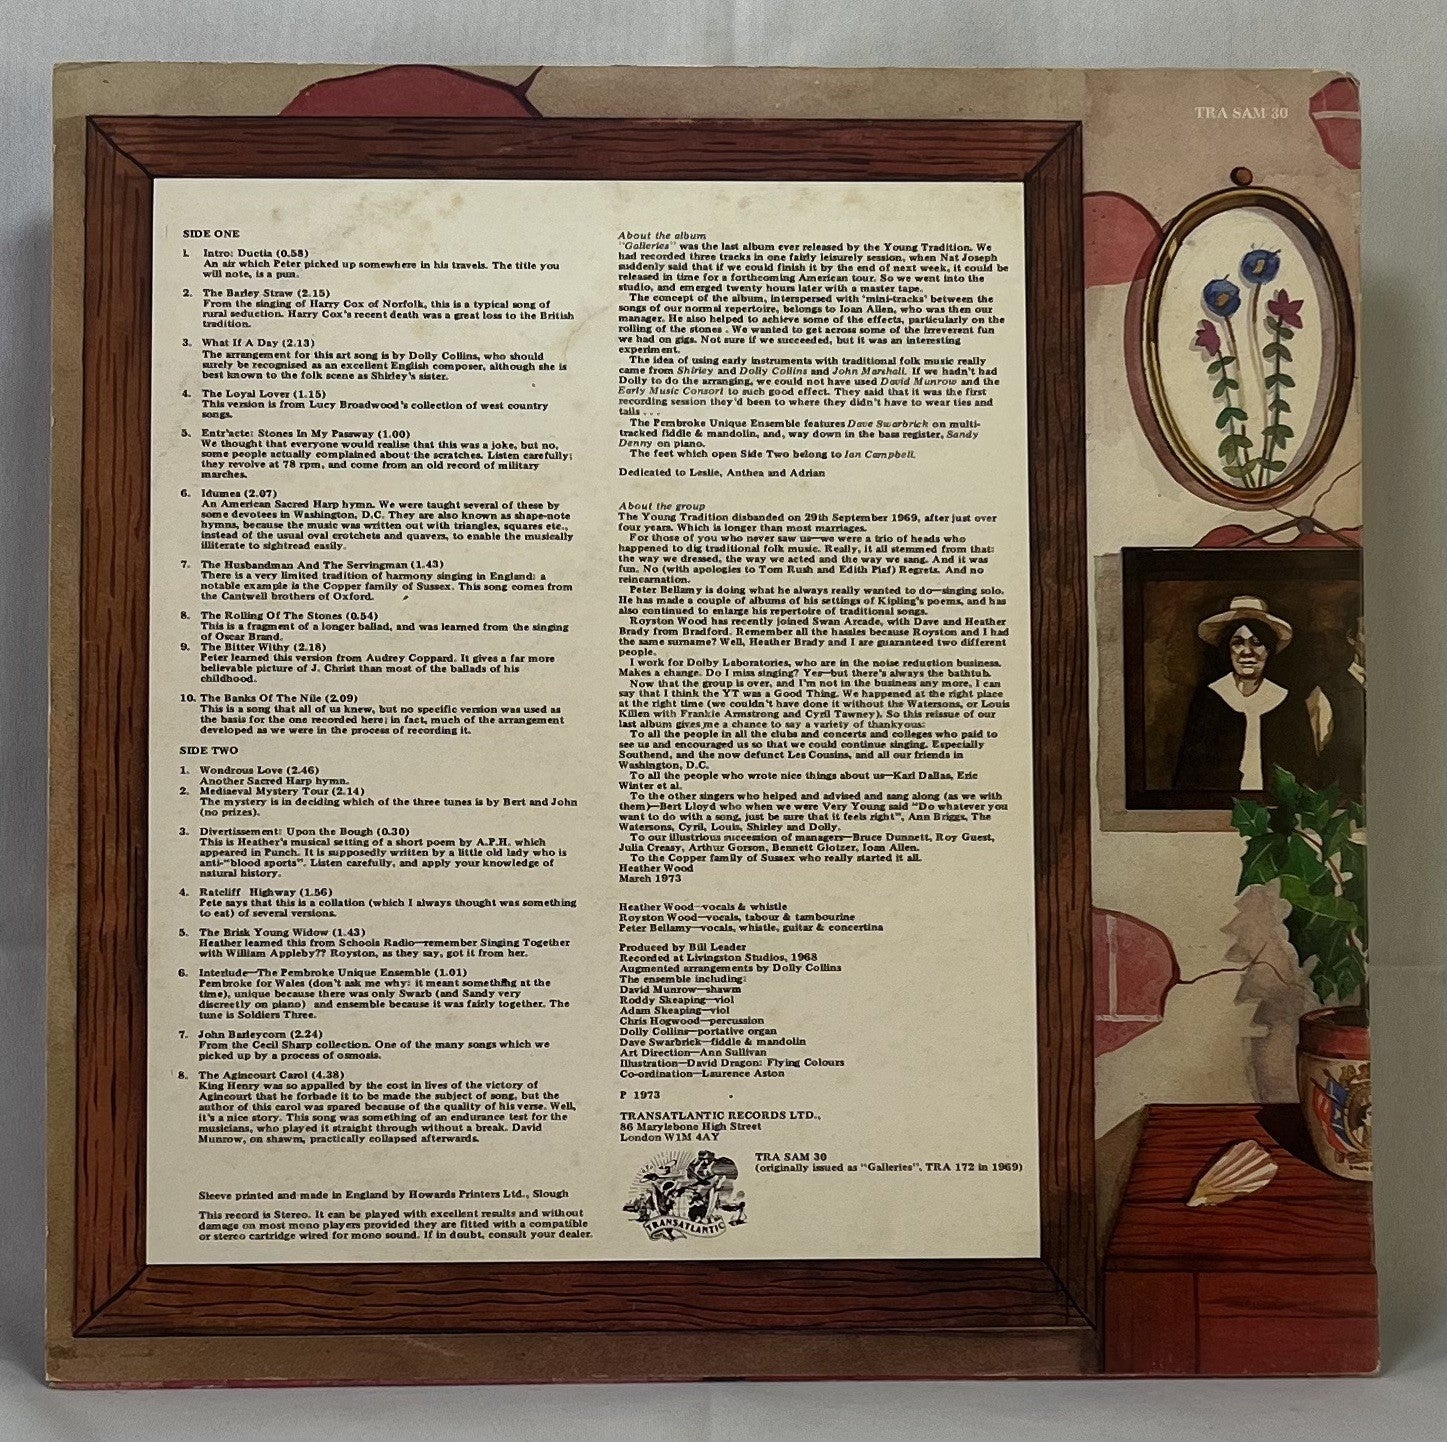 TRA SAM 30
SIDE ONE
1. Intro: Ductia (0.58)
An air which Peter picked up somewhere in his travels. The title you
will note, is a pun.
2. The Barley Straw (2.15)
From the singing of Harry Cox of Norfolk, this is a typical song of
rural seduction. Harry Cox's recent death was a great loss to the British
tradition.
3. What If A Day (2.13)
The arrangement for this art song is by Dolly Collins, who should
surely be recognised as an excellent English composer, although she is
best known to the folk scene as Shirley's sister.
4. The Loyal Lover (1.15)
This version is from Lucy Broadwood's collection of west country
songs.
5. Entr'acte: Stones In My Passway (1.00)
We thought that everyone would realise that this was a joke, but no,
some people actually complained about the scratches. Listen carefully;
they revolve at 78 rpm, and come from an old record of military
marches.
6. Idumea (2.07)
An American Sacred Harp hymn. We were taught several of these by
some devotees in Washington, D.C. They are also known as shape-note
hymns, because the music was written out with triangles, squares etc.,
instead of the usual oval crotchets and quavers, to enable the musically
illiterate to sightread easily.
7. The Husbandman And The Servingman (1.43)
There is a very limited tradition of harmony singing in England: a
notable example is the Copper family of Sussex. This song comes from
the Cantwell brothers of Oxford.
8. The Rolling Of The Stones (0.54)
This is a fragment of a longer ballad, and was learned from the singing
of Oscar Brand.
9. The Bitter Withy (2.18)
Peter learned this version from Audrey Coppard. It gives a far more
believable picture of J. Christ than most of the ballads of his
childhood.
10. The Banks Of The Nile (2.09)
This is a song that all of us knew, but no specific version was used as
the basis for the one recorded here; in fact, much of the arrangement
developed as we were in the process of recording it.
SIDE TWO
1. Wondrous Love (2.46)
Another Sacred Harp hymn.
2. Mediaeval Mystery Tour (2.14)
The mystery is in deciding which of the three tunes is by Bert and John
(no prizes).
3. Divertissement: Upon the Bough (0.30)
This is Heather's musical setting of a short poem by A.P.H. which
appeared in Punch. It is supposedly written by a little old lady who is
anti-"blood sports". Listen carefully, and apply your knowledge of
natural history.
4. Ratcliff Highway (1.56)
Pete says that this is a collation (which I always thought was something
to eat) of several versions.
5. The Brisk Young Widow (1.43)
Heather learned this from Schools Radio—remember Singing Together
with William Appleby?? Royston, as they say, got it from her.
6. Interlude—The Pembroke Unique Ensemble (1.01)
Pembroke for Wales (don't ask me why: it meant something at the
time), unique because there was only Swarb (and Sandy very
discreetly on piano) and ensemble because it was fairly together. The
tune is Soldiers Three.
7. John Barleycorn (2.24)
From the Cecil Sharp collection. One of the many songs which we
picked up by a process of osmosis.
8. The Agincourt Carol (4.38)
King Henry was so appalled by the cost in lives of the victory of
Agincourt that he forbade it to be made the subject of song, but the
author of this carol was spared because of the quality of his verse. Well,
it's a nice story. This song was something of an endurance test for the
musicians, who played it straight through without a break. David
Munrow, on shawm, practically collapsed afterwards.
Sleeve printed and made in England by Howards Printers Ltd., Slough
This record is Stereo. It can be played with excellent results and without
damage on most mono players provided they are fitted with a compatible
or stereo cartridge wired for mono sound. If in doubt, consult your dealer.
About the album
"Galleries" was the last album ever released by the Young Tradition. We
had recorded three tracks in one fairly leisurely session, when Nat Joseph
suddenly said that if we could finish it by the end of next week, it could be
released in time for a forthcoming American tour. So we went into the
studio, and emerged twenty hours later with a master tape.
The concept of the album, interspersed with 'mini-tracks' between the
songs of our normal repertoire, belongs to Ioan Allen, who was then our
manager. He also helped to achieve some of the effects, particularly on the
rolling of the stones . We wanted to get across some of the irreverent fun
we had on gigs. Not sure if we succeeded, but it was an interesting
experiment.
The idea of using early instruments with traditional folk music really
came from Shirley and Dolly Collins and John Marshall. If we hadn't had
Dolly to do the arranging, we could not have used David Munrow and the
Early Music Consort to such good effect. They said that it was the first
recording session they'd been to where they didn't have to wear ties and
tails . . .
The Pembroke Unique Ensemble features Dave Swarbrick on multi-
tracked fiddle & mandolin, and, way down in the bass register, Sandy
Denny on piano.
The feet which open Side Two belong to Ian Campbell.
Dedicated to Leslie, Anthea and Adrian
About the group
The Young Tradition disbanded on 29th September 1969, after just over
four years. Which is longer than most marriages.
For those of you who never saw us—we were a trio of heads who
happened to dig traditional folk music. Really, it all stemmed from that:
the way we dressed, the way we acted and the way we sang. And it was
fun. No (with apologies to Tom Rush and Edith Piaf) Regrets. And no
reincarnation.
Peter Bellamy is doing what he always really wanted to do—singing solo.
He has made a couple of albums of his settings of Kipling's poems, and has
also continued to enlarge his repertoire of traditional songs.
Royston Wood has recently joined Swan Arcade, with Dave and Heather
Brady from Bradford. Remember all the hassles because Royston and I had
the same surname? Well, Heather Brady and I are guaranteed two different
people.
I work for Dolby Laboratories, who are in the noise reduction business.
Makes a change. Do I miss singing? Yes—but there's always the bathtub.
Now that the group is over, and I'm not in the business any more, I can
say that I think the YT was a Good Thing. We happened at the right place
at the right time (we couldn't have done it without the Watersons, or Louis
Killen with Frankie Armstrong and Cyril Tawney). So this reissue of our
last album gives me a chance to say a variety of thankyous:
To all the people in all the clubs and concerts and colleges who paid to
see us and encouraged us so that we could continue singing. Especially
Southend, and the now defunct Les Cousins, and all our friends in
Washington, D.C.
To all the people who wrote nice things about us—Karl Dallas, Eric
Winter et al.
To the other singers who helped and advised and sang along (as we with
them)—Bert Lloyd who when we were Very Young said "Do whatever you
want to do with a song, just be sure that it feels right", Ann Briggs, The
Watersons, Cyril, Louis, Shirley and Dolly.
To our illustrious succession of managers—Bruce Dunnett, Roy Guest,
Julia Creasy, Arthur Gorson, Bennett Glotzer, Ioan Allen.
To the Copper family of Sussex who really started it all.
Heather Wood
March 1973
Heather Wood—vocals & whistle
Royston Wood—vocals, tabour & tambourine
Peter Bellamy—vocals, whistle, guitar & concertina
Produced by Bill Leader
Recorded at Livingston Studios, 1968
Augmented arrangements by Dolly Collins
The ensemble including:
David Munrow—shawm
Roddy Skeaping—viol
Adam Skeaping—viol
Chris Hogwood—percussion
Dolly Collins—portative organ
Dave Swarbrick—fiddle & mandolin
Art Direction—Ann Sullivan
Illustration—David Dragon: Flying Colours
Co-ordination—Laurence Aston
P 1973
TRANSATLANTIC RECORDS LTD.,
86 Marylebone High Street
London W1M 4AY
TRANSATLANTIC
TRA SAM 30
(originally issued as "Galleries", TRA 172 in 1969)